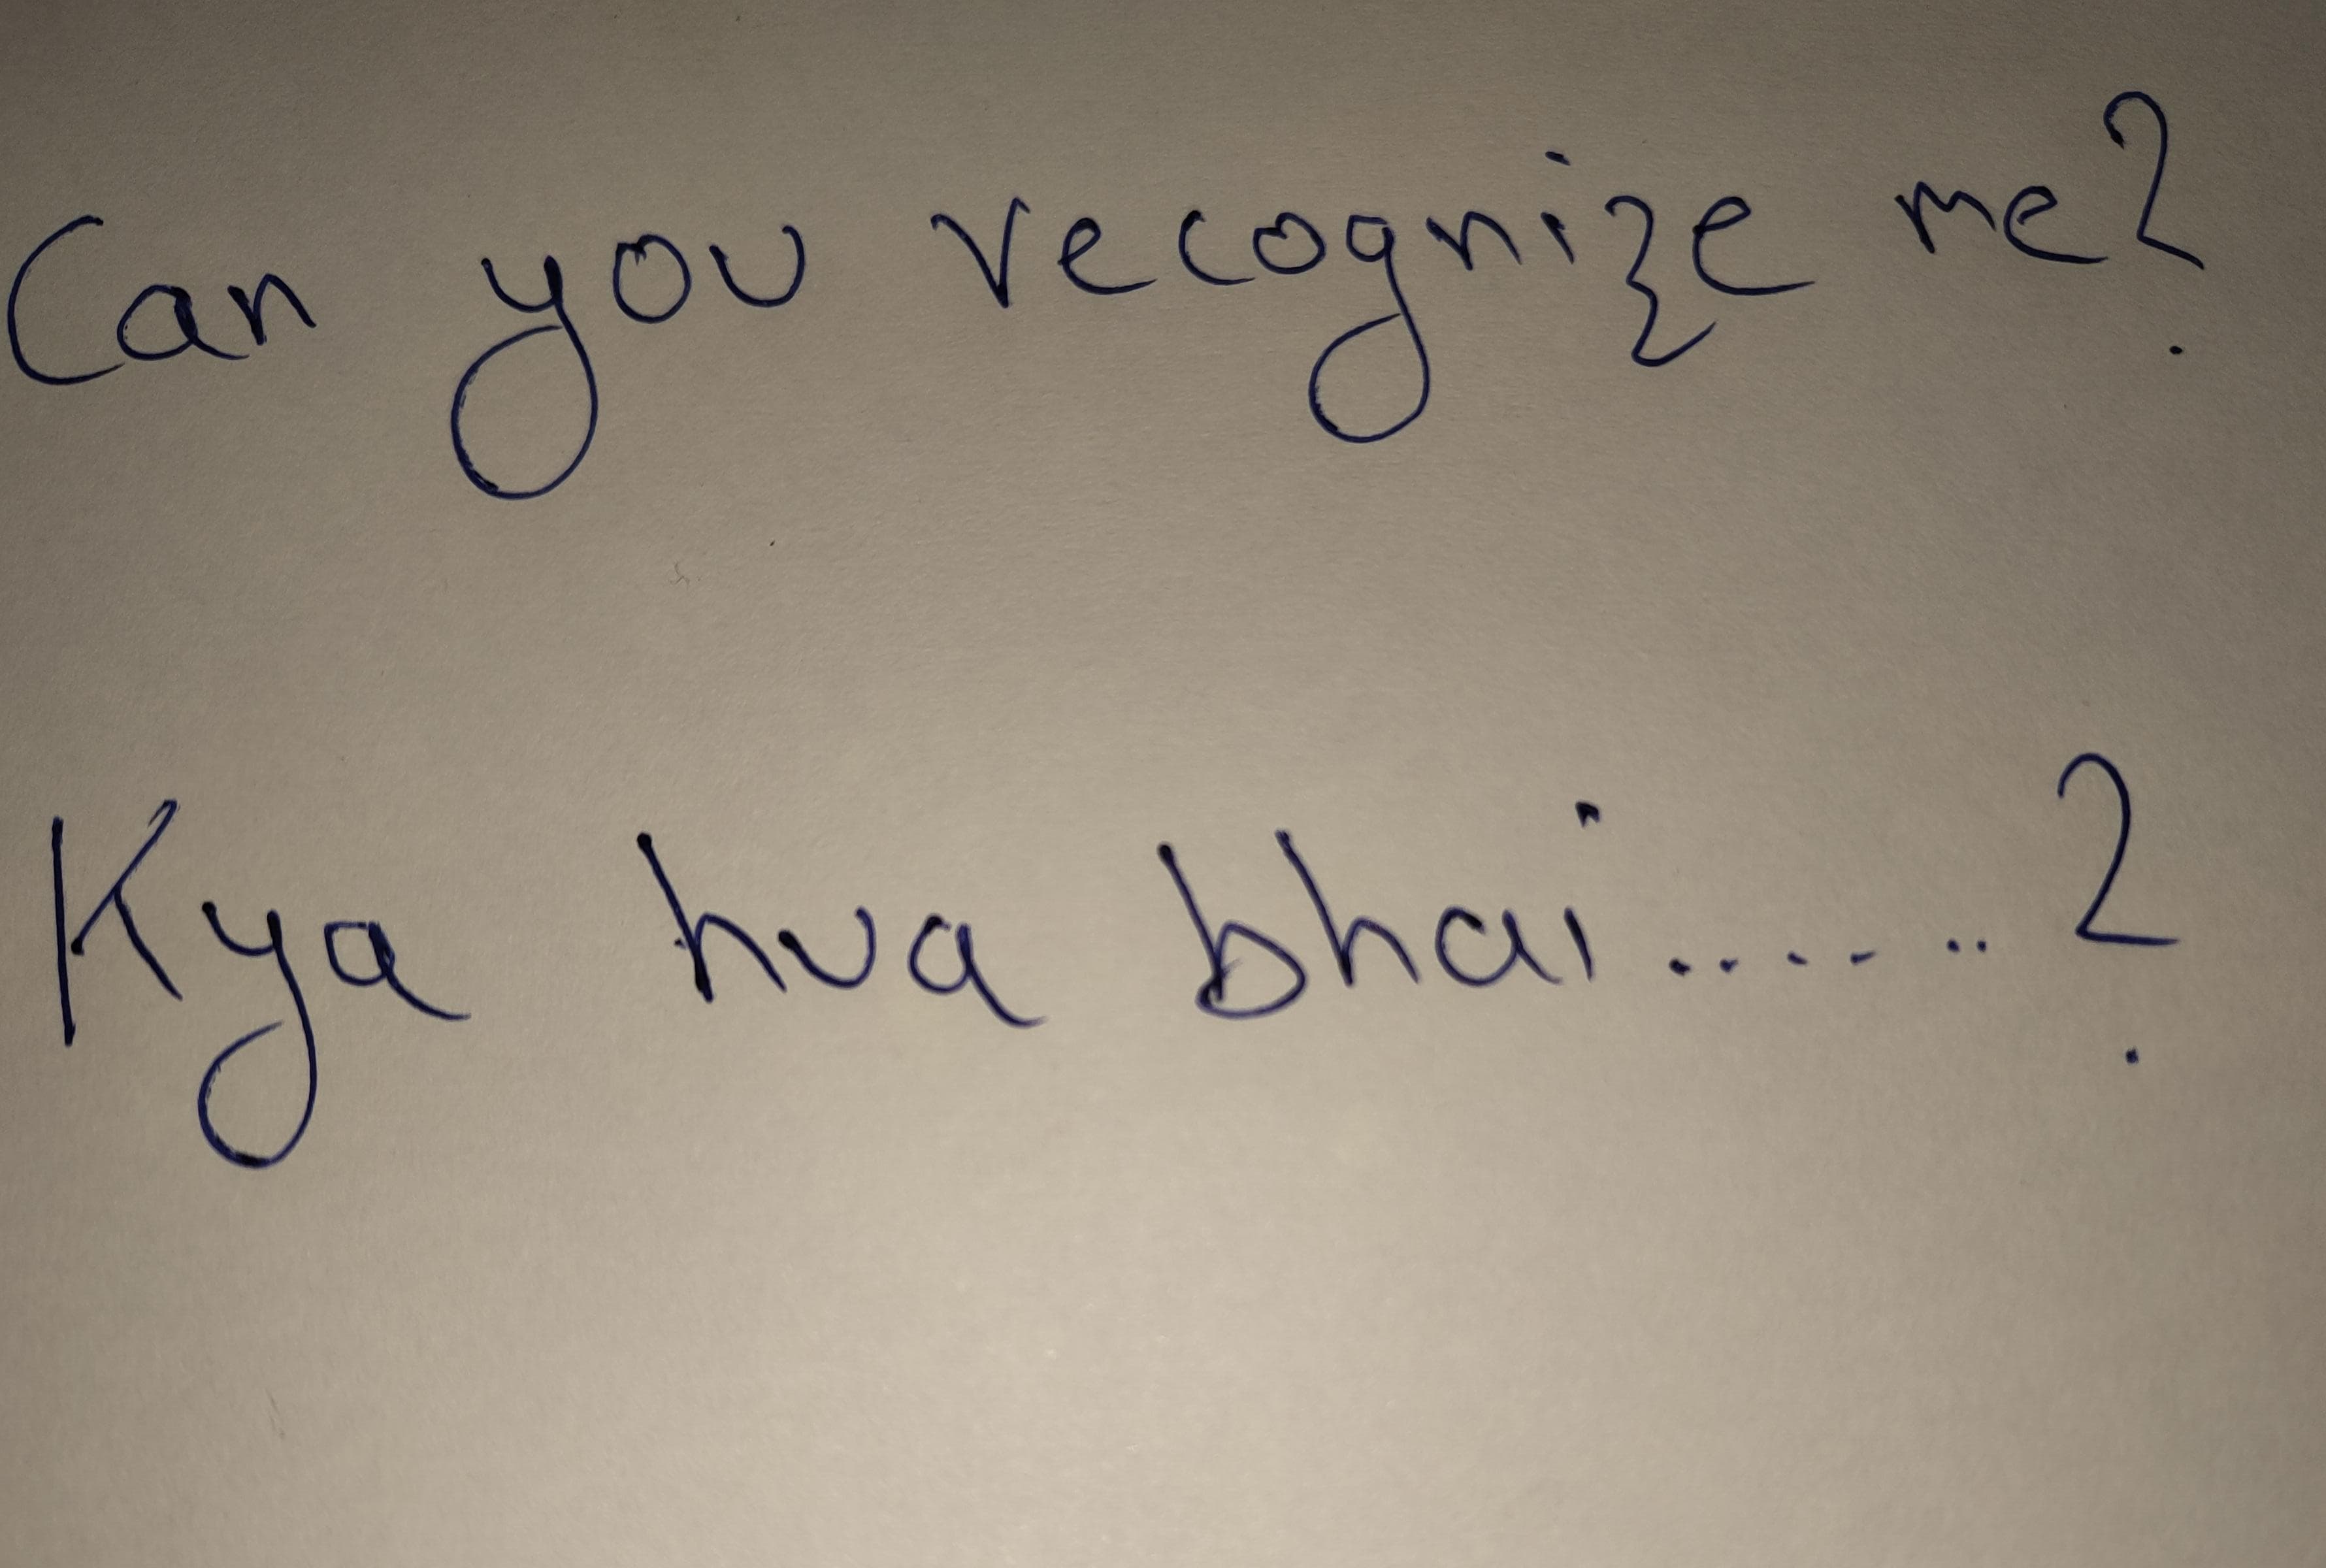 Can you recognize me?
Kya hua bhai........?